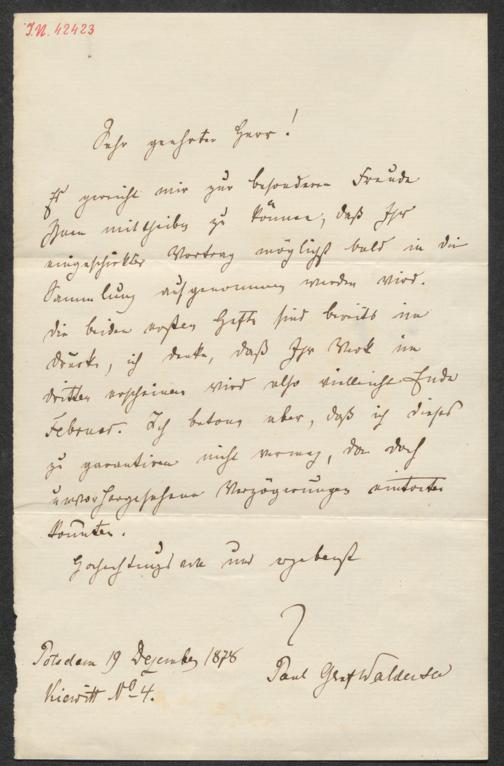 I.N. 42423
Sehr geehrter Herr!
Es gereicht mir zur besonderen Freude
Ihnen mittheilen zu können, daß Ihr
eingeschickter Vortrag möglichst bald in die
Sammlung aufgenommen werden wird.
Die beiden ersten Hefte sind bereits im
Drucke, ich denke, daß Ihr Werk im
dritten erscheinen wird also vielleicht Ende
Februar. Ich betone aber, daß ich dieses
zu garantiren nicht vermag, da doch
unvorhergesehene Verzögerungen eintreten
könnten.
Hochachtungsvoll und ergebenst
Paul Graf Waldersee
Potsdam 19 Dezember 1878
Kiewitt No 4.